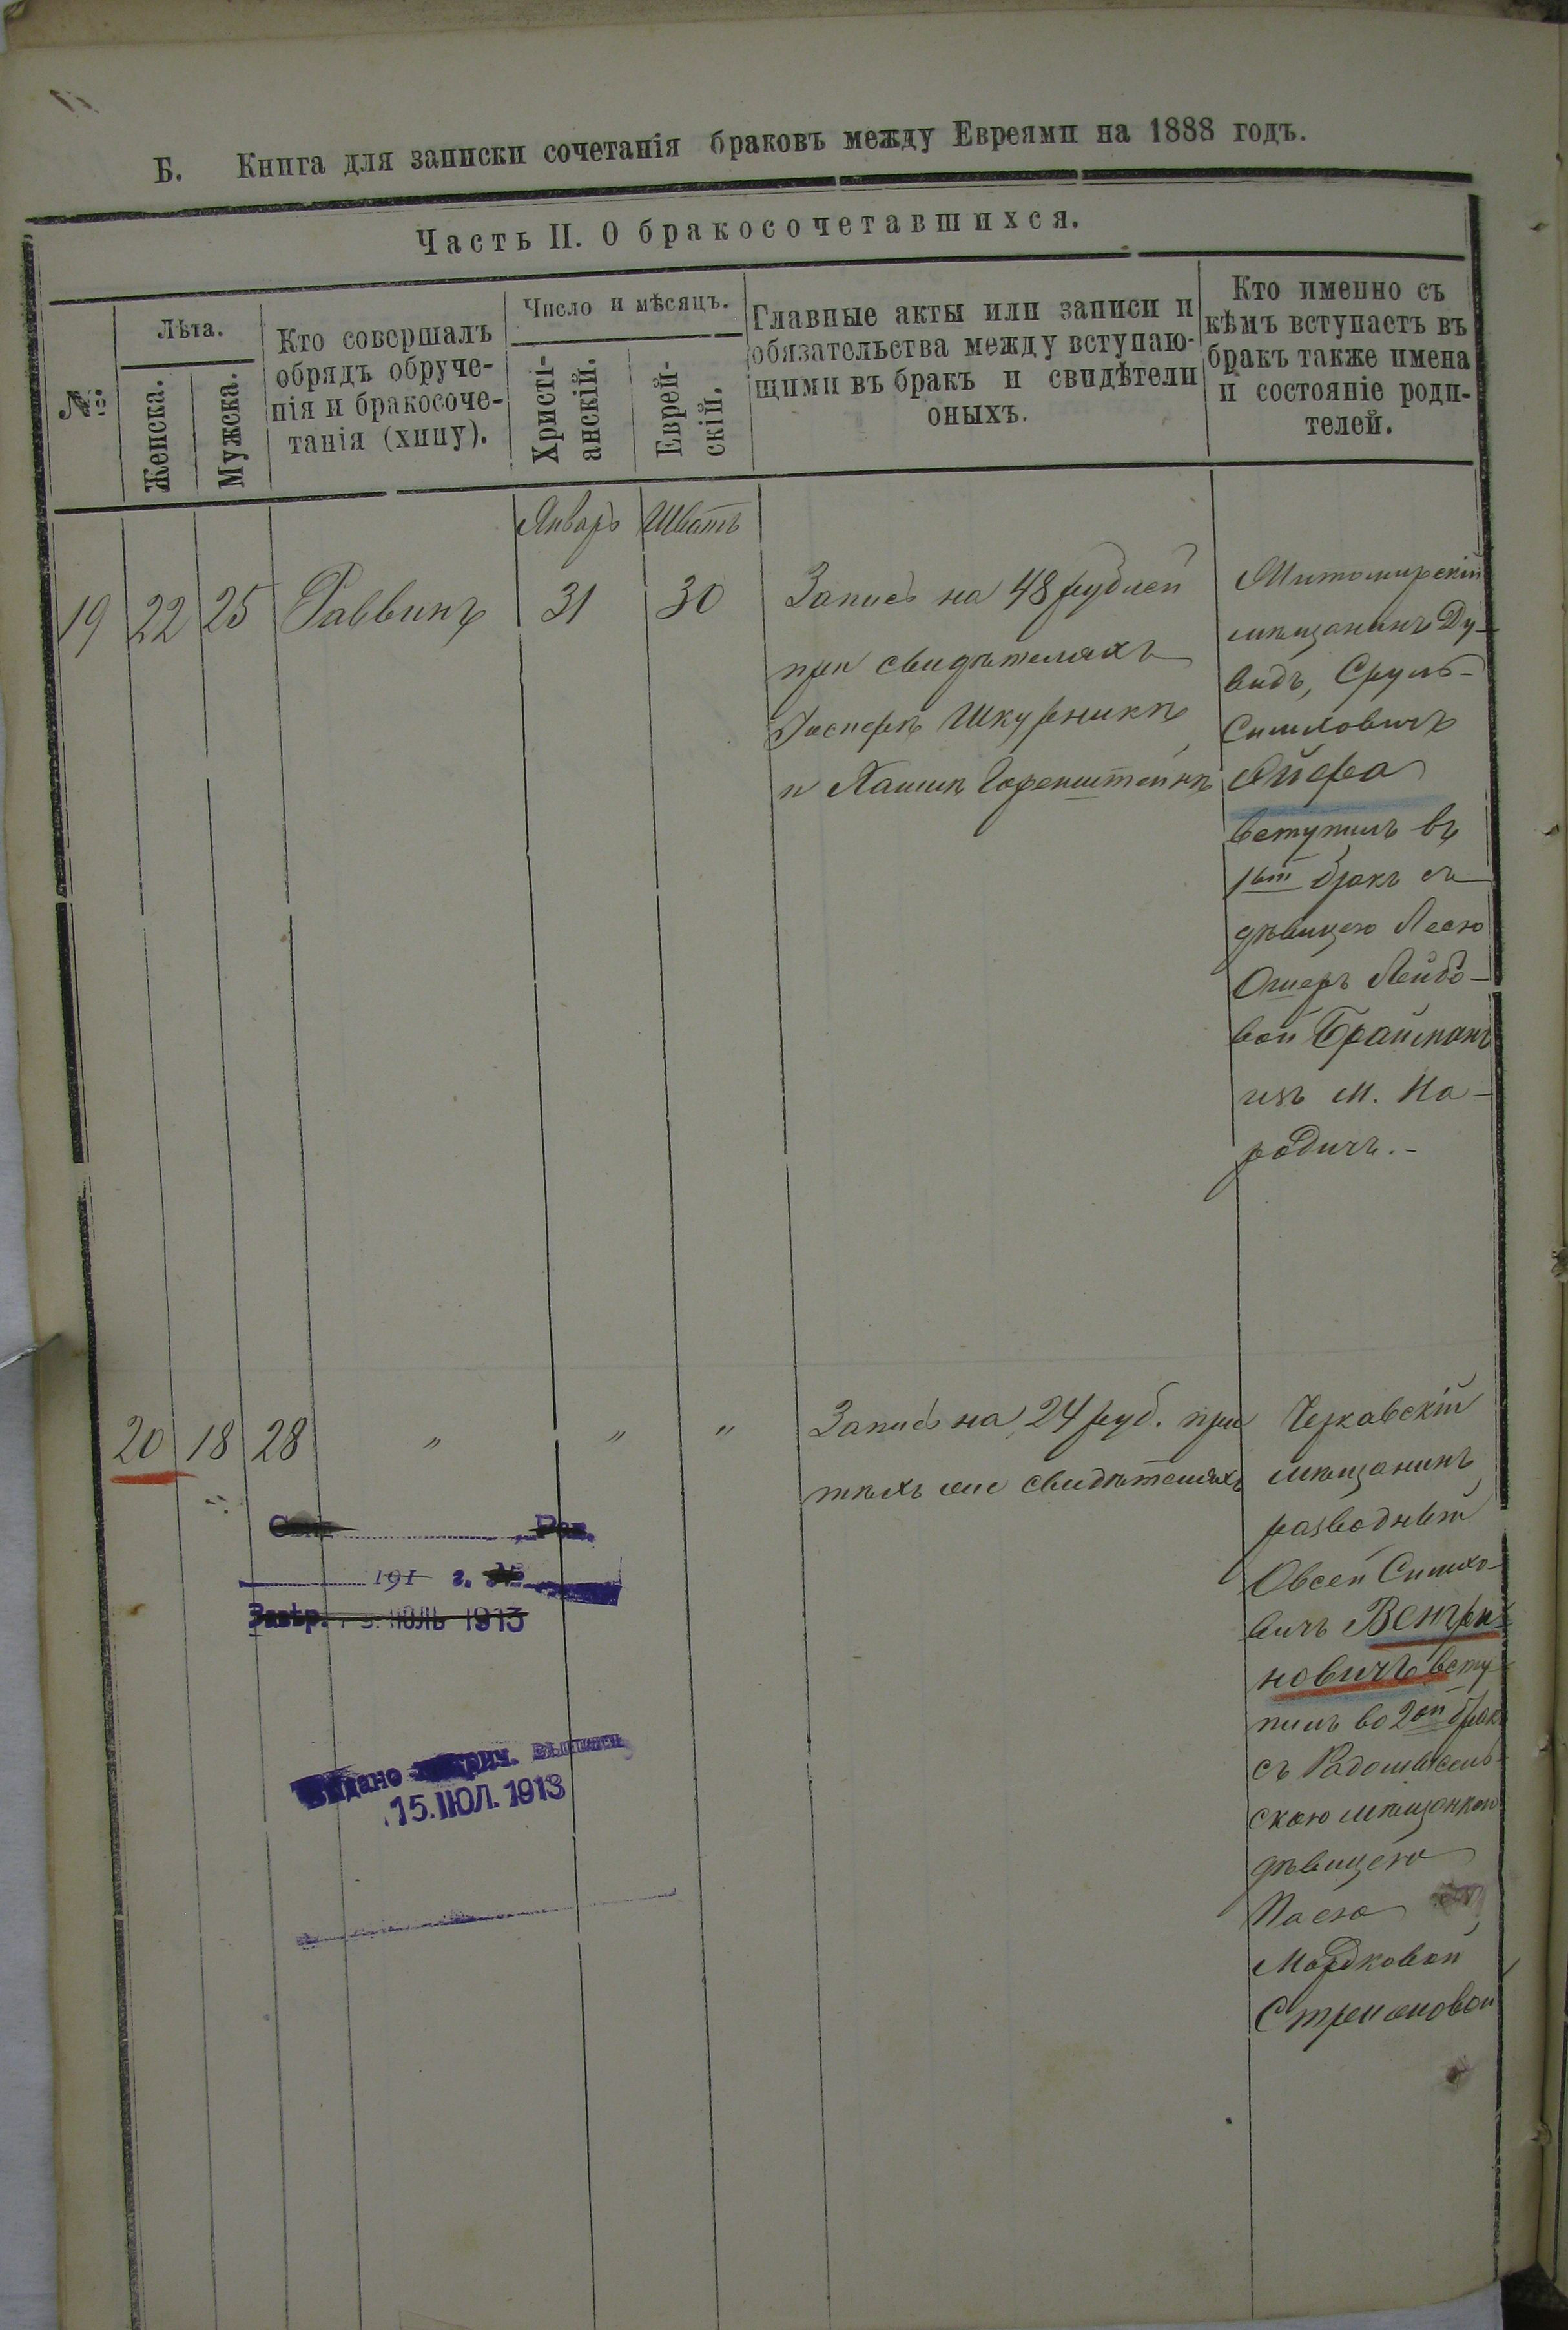 Б. Книга для записки сочетанія браковъ между Евреями на 1888 годъ.
Часть II. О бракосочетавшихся.
№
Лѣта.
Женска.
Мужска.
Кто совершалъ
обрядъ обруче-
нія и бракосоче-
танія (хипу).
Число и мѣсяцъ.
Христі-
анскій.
Еврей-
скій.
Главные акты или записи и
обязательства между вступаю-
щими въ бракъ и свидѣтели
оныхъ.
Кто именно съ
кѣмъ вступаетъ въ
бракъ также имена
и состояніе роди-
телей.
Январь Шватъ
19 22 25 Раввинъ 31 30
Запись на 48 рублей
при свидѣтеляхъ
Іосперѣ Шкурникѣ
и Хаимѣ Горенштейнѣ
Житомирскій
мѣщанинъ Ду-
видъ, Сруль-
Симховичъ
Айера
вступилъ въ
1ый бракъ съ
дѣвицею Лесею
Ошеръ Лейбо-
вой Бройманъ
изъ м. На-
родичъ.-
20 18 28 " " "
Запись на 24 руб. при
тѣхъ же свидѣтеляхъ
Черкавскій
мѣщанинъ
разводный
Овсей Симхо-
вичъ Венгри-
новичъ всту-
пилъ во 2ой бракъ
съ Радомысль-
скою мѣщанкою
дѣвицею
Пасею
Мордковой
191 г. №
Завѣр. ІЮЛЬ 1913
Выдано
15. ІЮЛ. 1913